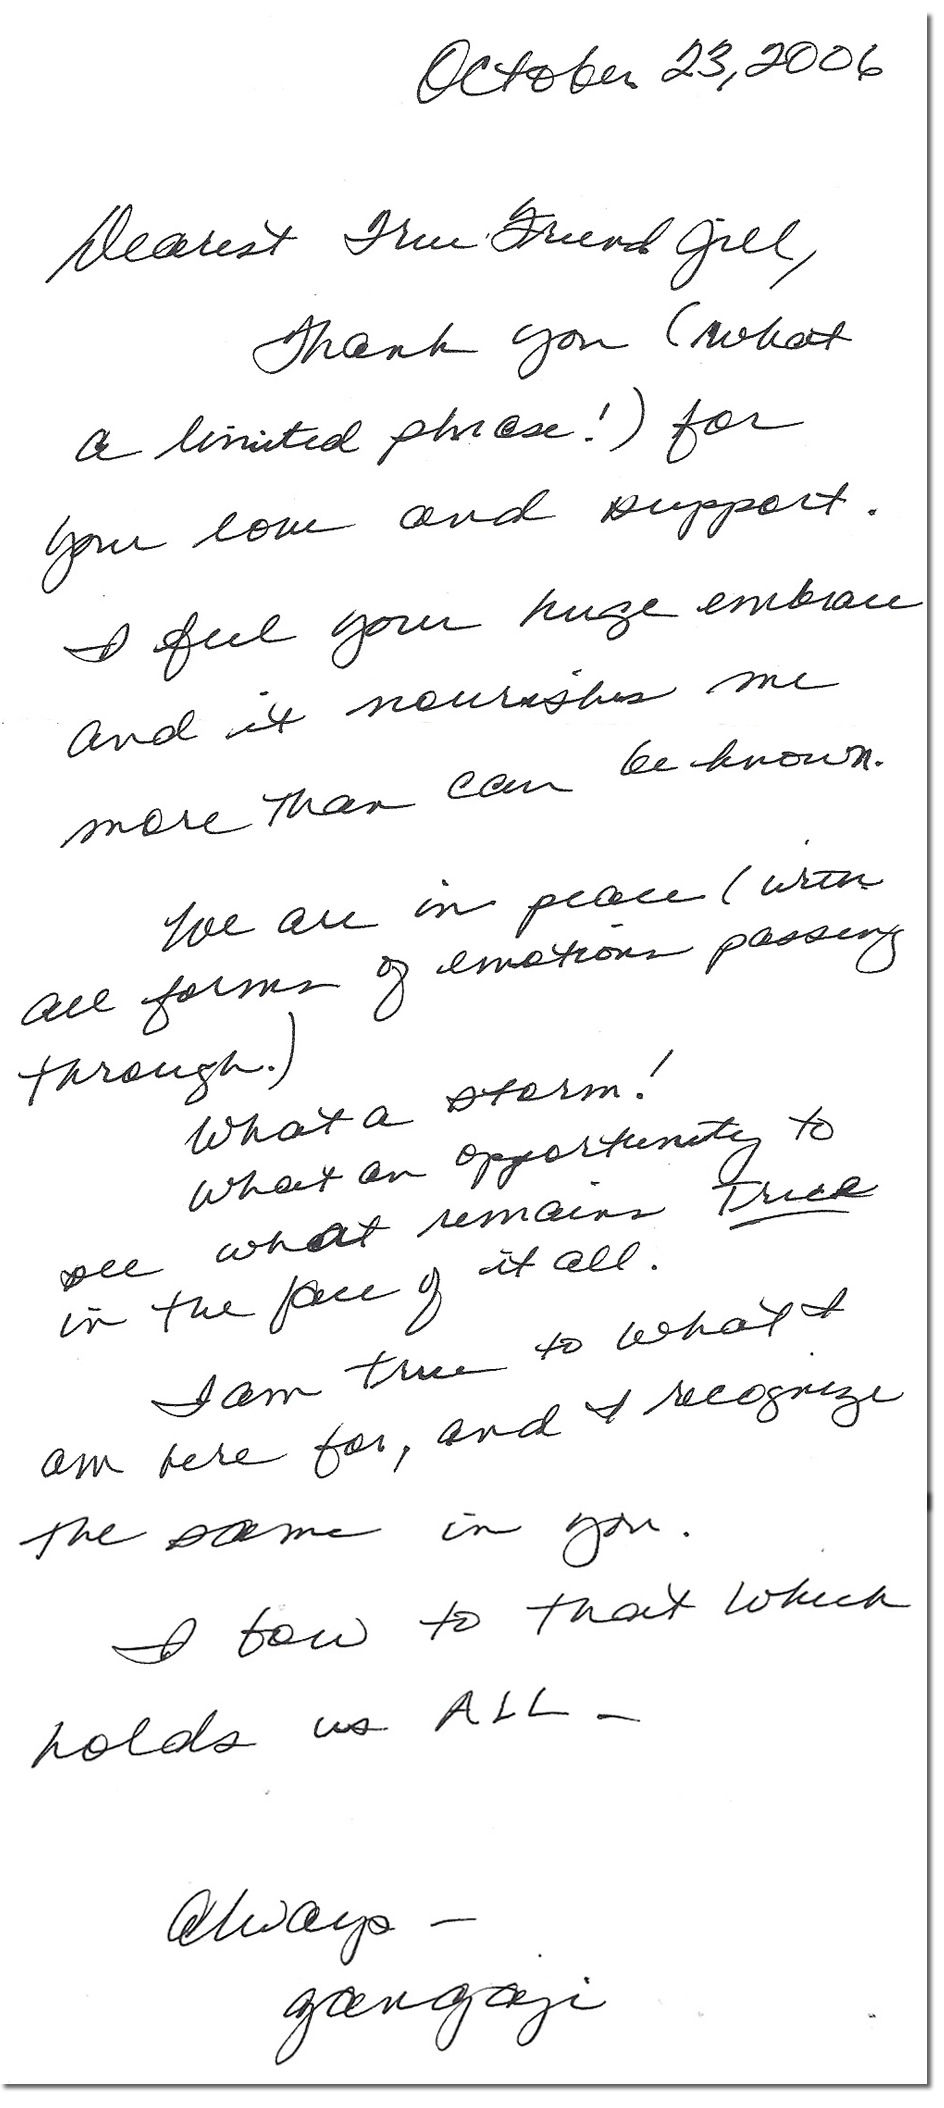 October 23, 2006
Dearest True Friend Gill,
Thank you (what
a limited phrase!) for
your love and support.
I feel your huge embrace
and it nourishes me
more than can be known.
We are in peace (with
all forms of emotions passing
through.)
What a storm!
What an opportunity to
see what remains True
in the face of it all.
I am true to what I
am here for, and I recognize
the same in you.
I bow to that which
holds us ALL –
Always –
gangaji